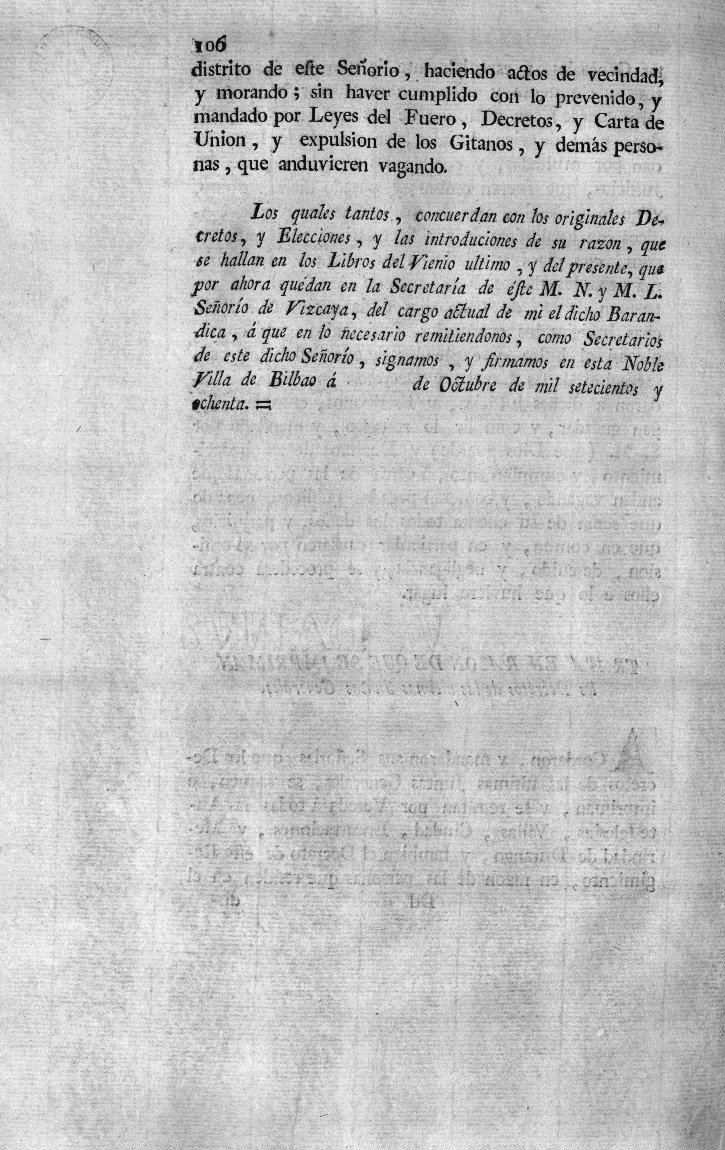 106
distrito de eſte Señorio, haciendo actos de vecindad,
y morando; sin haver cumplido con lo prevenido, y
mandado por Leyes del Fuero, Decretos, y Carta de
Union, y expulsion de los Gitanos, y demás perso-
nas, que anduvieren vagando.
Los quales tantos, concuerdan con los originales De-
cretos, y Elecciones, y las introduciones de su razon, que
se hallan en los Libros del Vienio ultimo, y del presente, que
por ahora quedan en la Secretaría de éſte M. N. y M. L.
Señorío de Vizcaya, del cargo actual de mi el dicho Baran-
dica, á que en lo necesario remitiendonos, como Secretarios
de este dicho Señorío, signamos, y firmamos en esta Noble
Villa de Bilbao á de Octubre de mil setecientos y
ochenta. =